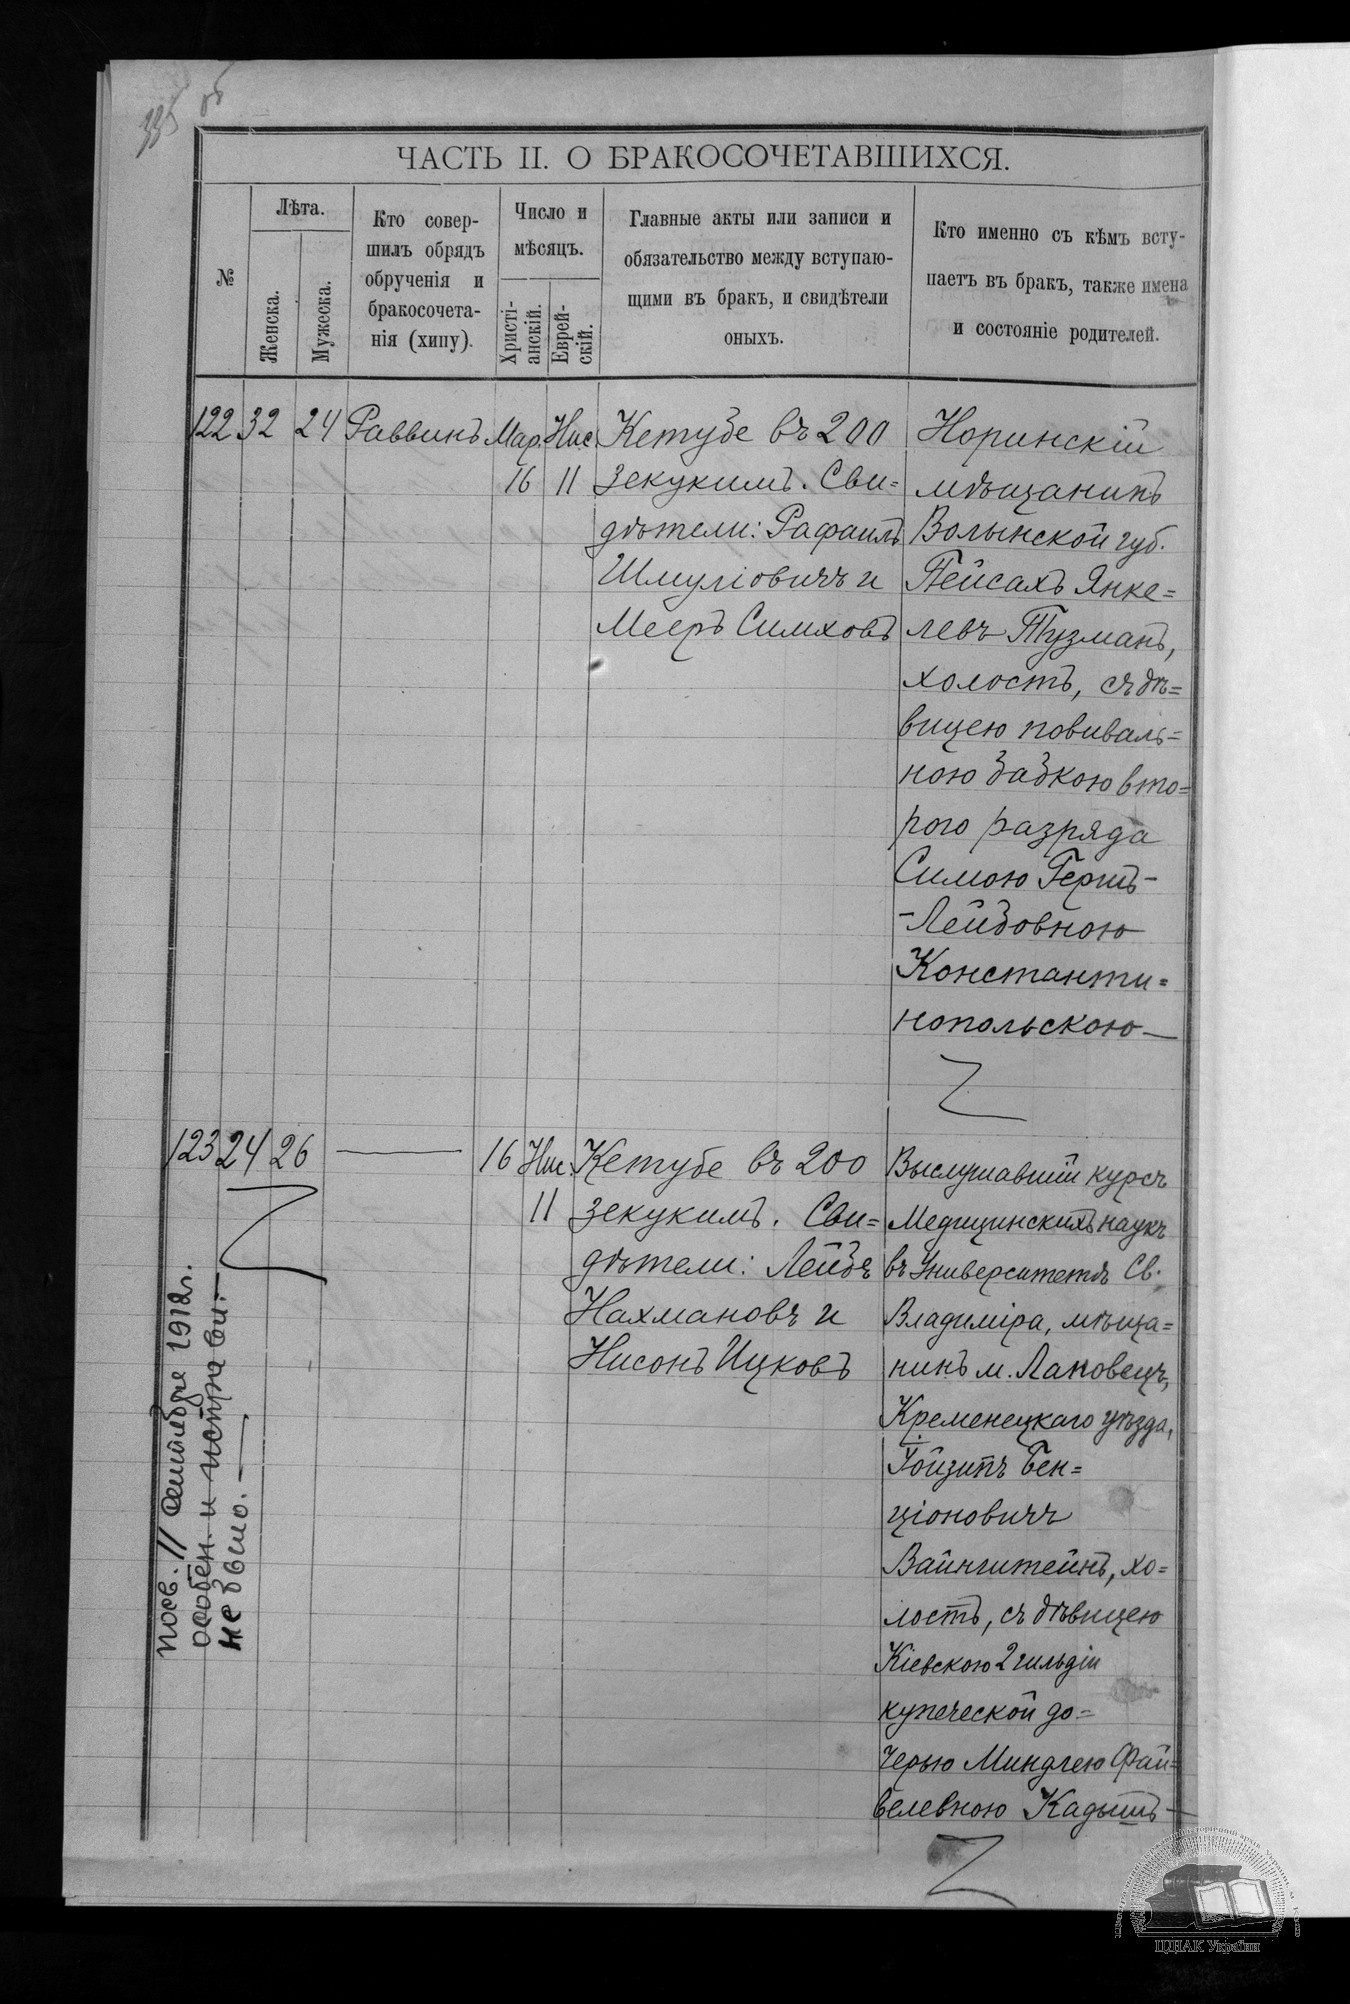 335 об
ЧАСТЬ II. О БРАКОСОЧЕТАВШИХСЯ.
№
Лѣта.
Женска.
Мужеска.
Кто совер-
шилъ обрядъ
обрученія и
бракосочета-
нія (хипу).
Число и
мѣсяцъ.
Христі-
анскій.
Еврей-
скій.
Главные акты или записи и
обязательство между вступаю-
щими въ бракъ, и свидѣтели
оныхъ.
Кто именно съ кѣмъ всту-
паетъ въ бракъ, также имена
и состояніе родителей.
122 32 24 Раввинъ Мар. Нис.
16 11
Кетубе въ 200
зекукимъ. Сви=
дѣтели: Рафаилъ
Шмуліовичъ и
Мееръ Симховъ
Норинскій
мѣщанинъ
Волынской губ.
Пейсахъ Янке=
левъ Тузманъ,
холостъ, съ дѣ=
вицею повиваль=
ною бабкою вто=
рого разряда
Симою Гершъ-
-Лейбовною
Константи=
нопольскою
123 24 26 16 Нис.
11
Кетубе въ 200
зекукимъ. Сви=
дѣтели: Лейбъ
Нахмановъ и
Нисонъ Ицковъ
Выслушавшій курсъ
Медицинскихъ наукъ
въ Университетѣ Св.
Владиміра, мѣща=
нинъ м. Лановецъ,
Кременецкаго уѣзда,
Гойзипъ Бен=
ціоновичъ
Вайнштейнъ, хо=
лостъ, съ дѣвицею
Кіевскою 2 гильдіи
купеческой до=
черью Миндлею Фай=
велевною Кадышъ
посв. 11 Сентября 1912 г.
особен. и исправ
не было.
ЦДІАК України